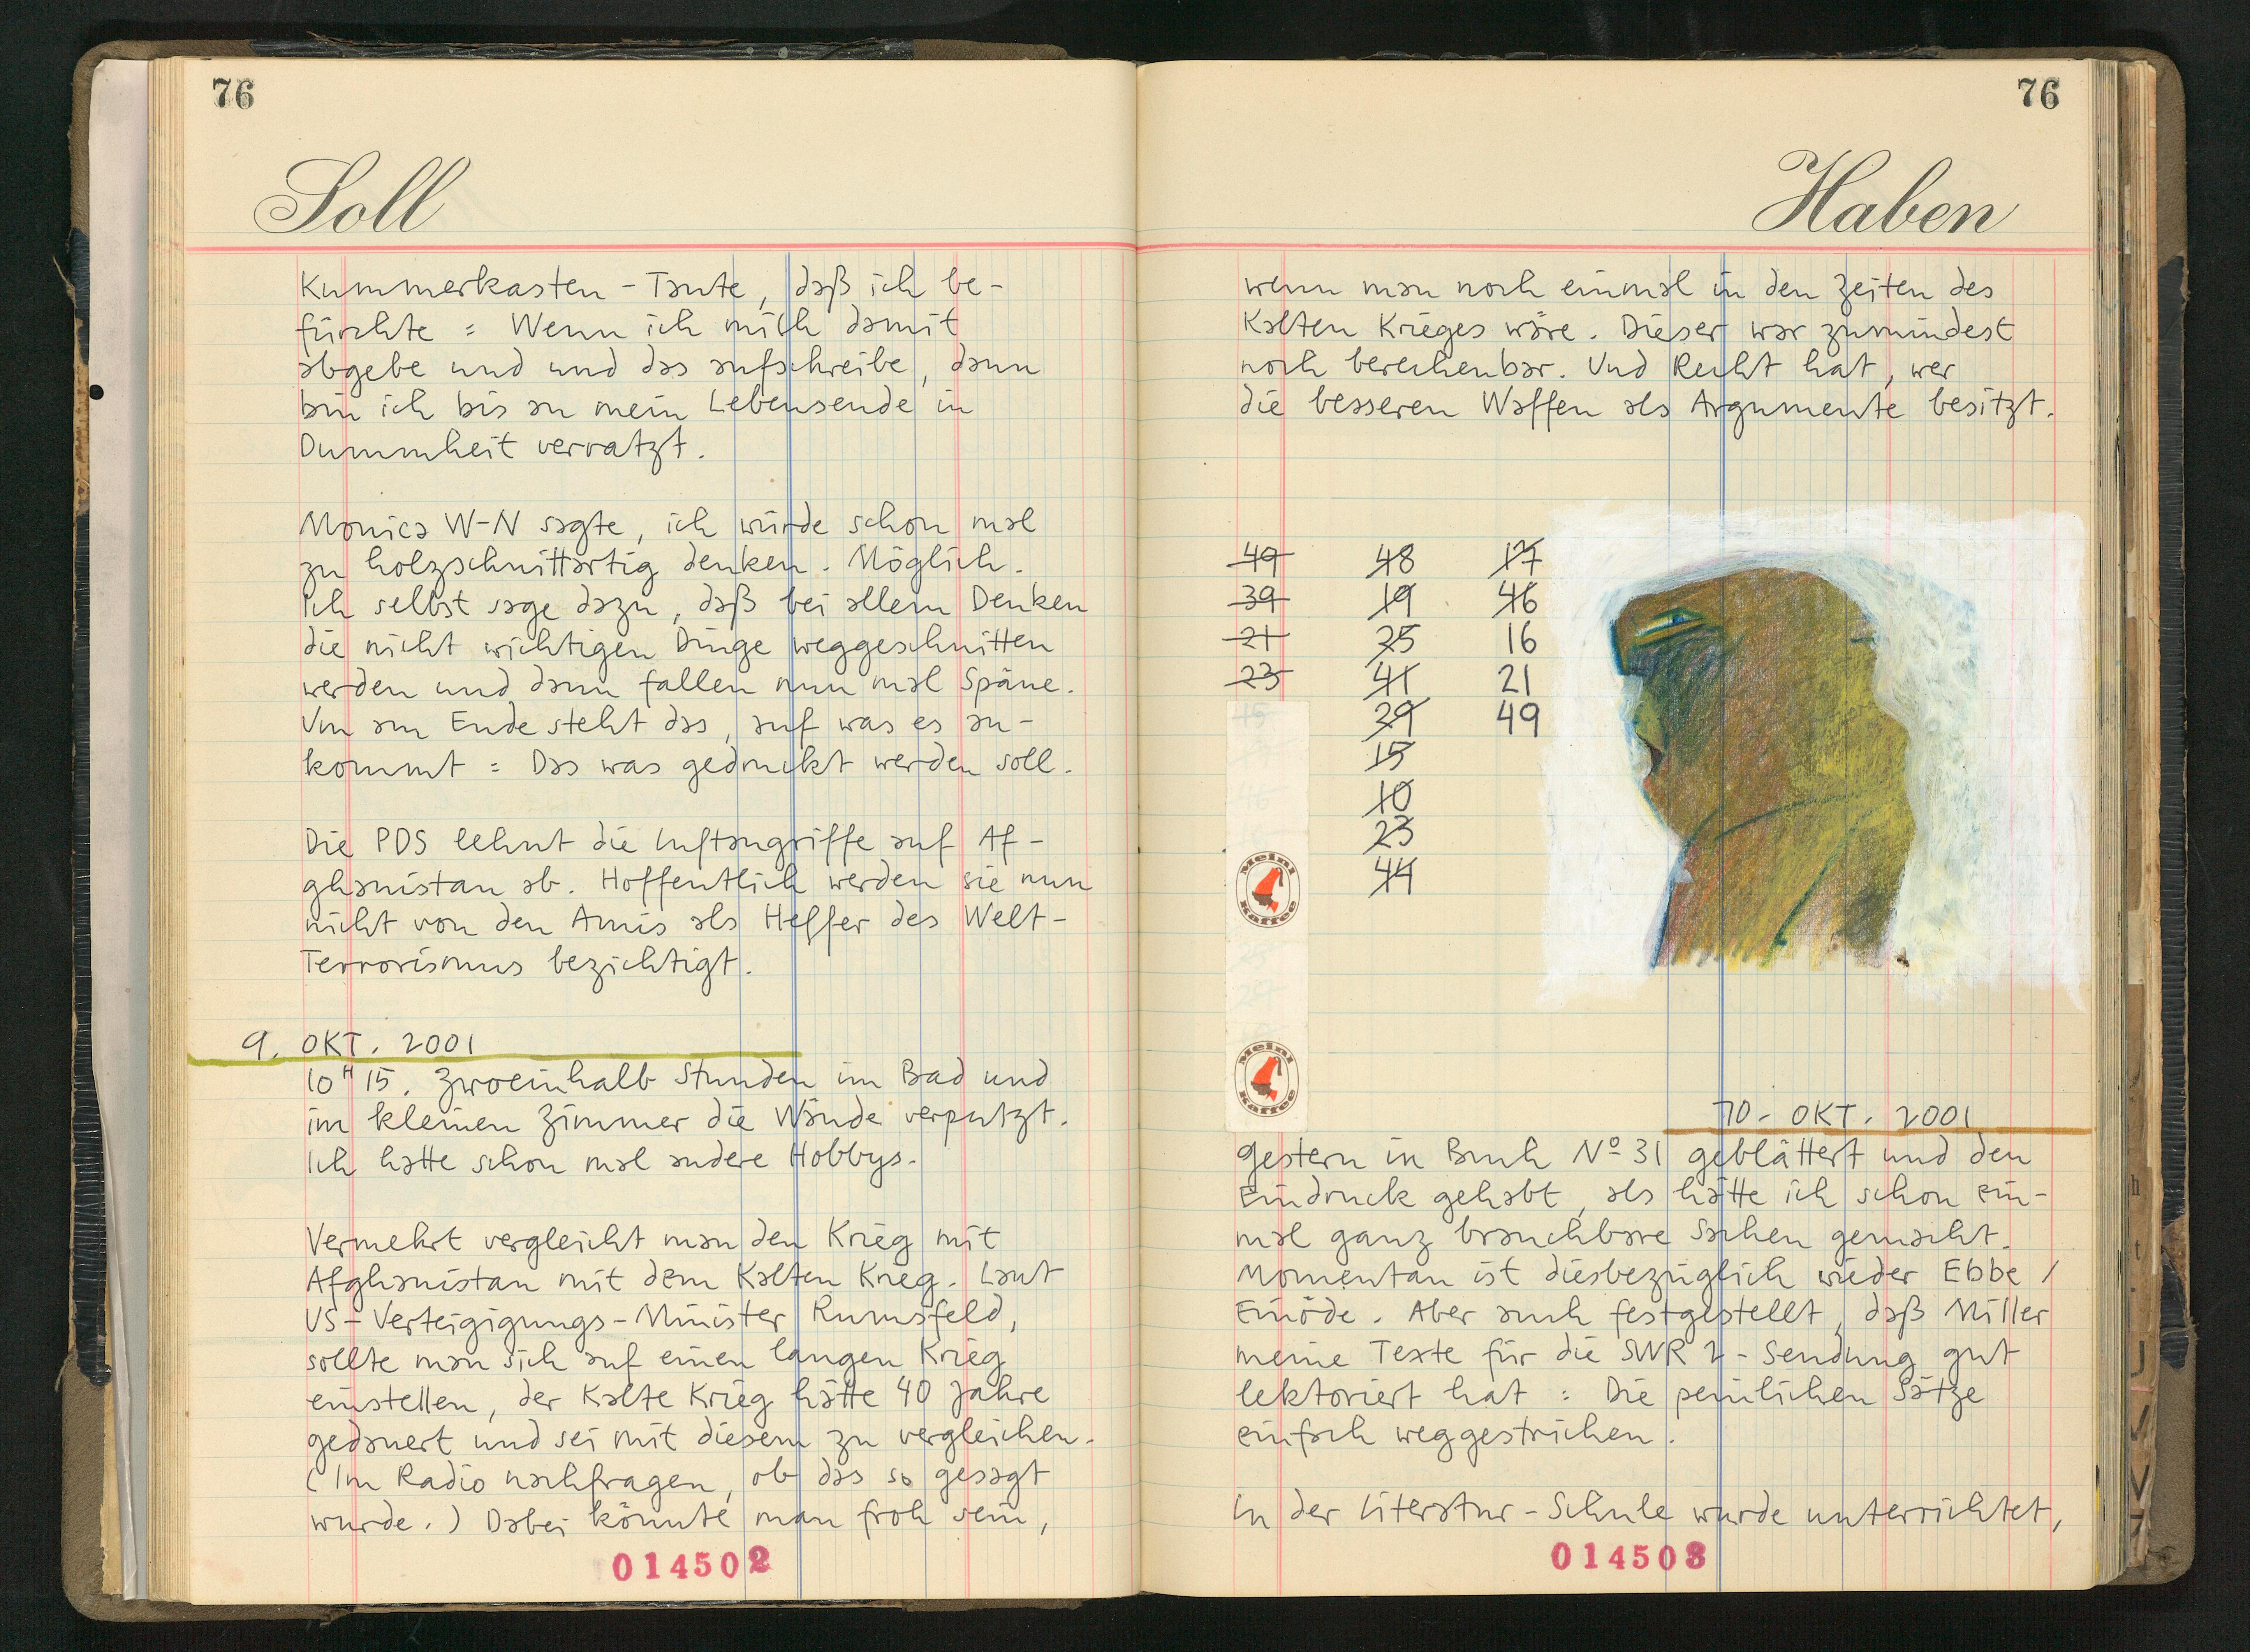 76
Soll
Kummerkasten-Tante, daß ich be-
fürchte: Wenn ich mich damit
abgebe und und das aufschreibe, dann
bin ich bis an mein Lebensende in
Dummheit verratzt.
Monica W-N sagte, ich würde schon mal
zu holzschnittartig denken. Möglich.
Ich selbst sage dazu, daß bei allem Denken
die nicht wichtigen Dinge weggeschnitten
werden und dann fallen nun mal Späne.
Un am Ende steht das, auf was es an-
kommt: Das was gedruckt werden soll.
Die PDS lehnt die Luftangriffe auf Af-
ghanistan ab. Hoffentlich werden sie nun
nicht von den Amis als Helfer des Welt-
Terrorismus bezichtigt.
9. OKT. 2001
10H15. Zwoeinhalb Stunden im Bad und
im kleinen Zimmer die Wände verputzt.
Ich hatte schon mal andere Hobbys.
Vermehrt vergleicht man den Krieg mit
Afghanistan mit dem Kalten Krieg. Laut
US-Verteigigungs-Minister Rumsfeld,
sollte man sich auf einen langen Krieg
einstellen, der Kalte Krieg hätte 40 Jahre
gedauert und sei mit diesem zu vergleichen.
(Im Radio nachfragen, ob das so gesagt
wurde.) Dabei könnte man froh sein,
014502
76
Haben
wenn man noch einmal in den Zeiten des
Kalten Krieges wäre. Dieser war zumindest
noch berechenbar. Und Recht hat, wer
die besseren Waffen als Argumente besitzt.
49 48 17
39 19 46
21 25 16
23 41 21
45 29 49
15
46 10
23
44
Meinl
Kaffee
29
Meinl
Kaffee
10. OKT. 2001
Gestern in Buch Nº 31 geblättert und den
Eindruck gehabt, als hätte ich schon ein-
mal ganz brauchbare Sachen gemacht.
Momentan ist diesbezüglich wieder Ebbe /
Einöde. Aber auch festgestellt, daß Miller
meine Texte für die SWR 2-Sendung gut
lektoriert hat: Die peinlichen Sätze
einfach weggestrichen.
In der Literatur-Schule wurde unterrichtet,
014503